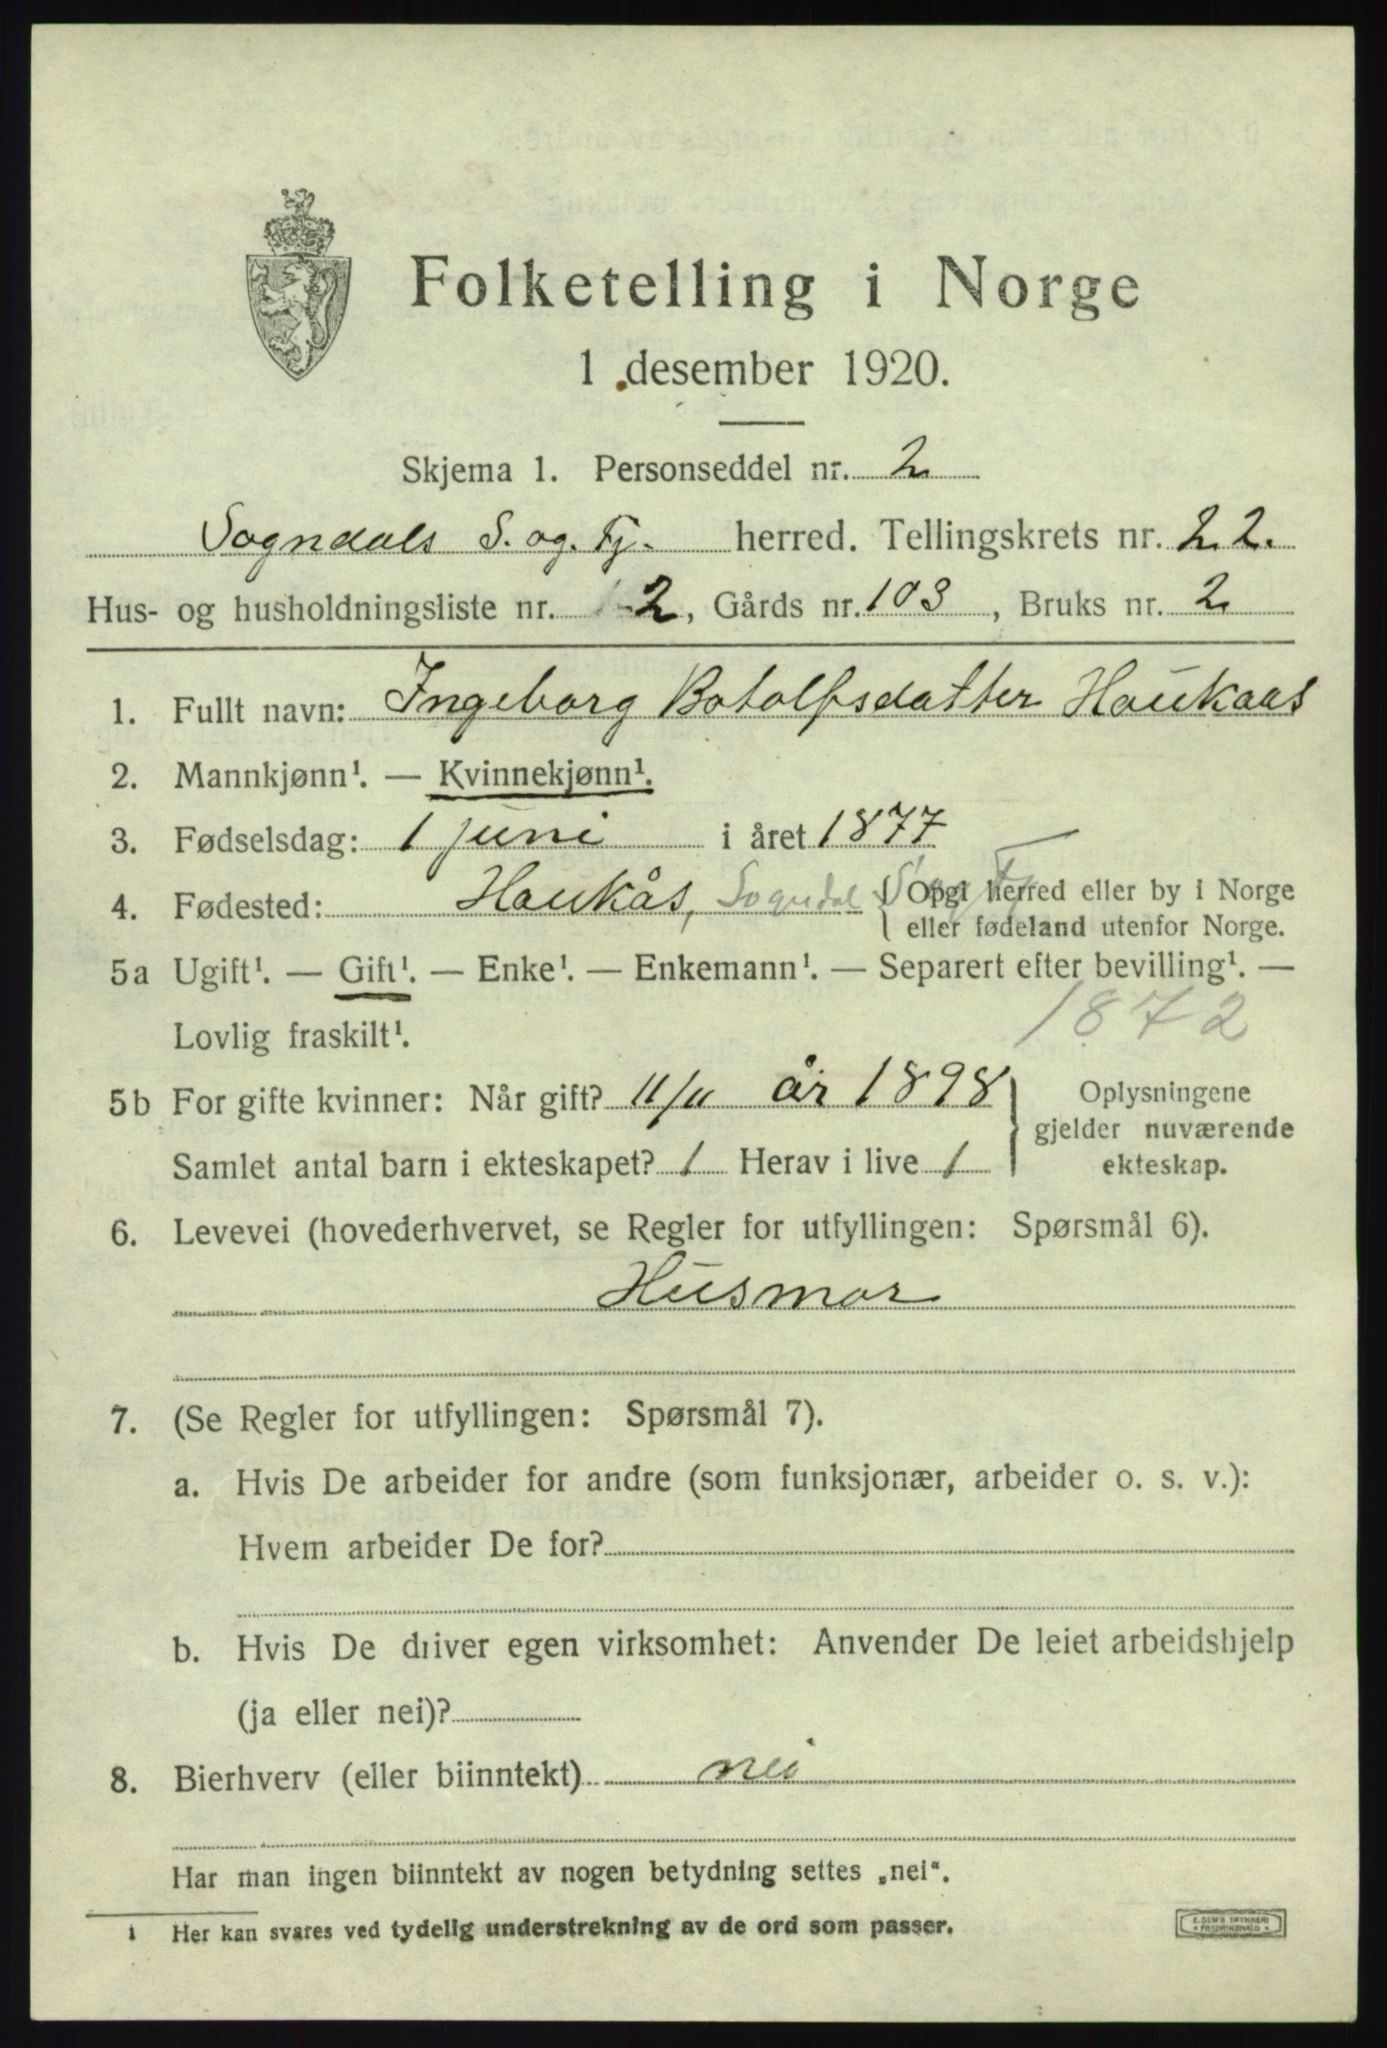 Folketelling i Norge
1 desember 1920.
Skjema 1. Personseddel nr. 2
Sogndals S. og. Fj. herred. Tellingskrets nr. 22.
Hus- og husholdningsliste nr. 2, Gårds nr. 103, Bruks nr. 2
1. Fullt navn: Ingeborg Botolfsdatter Haukaas
2. Mannkjønn¹. — Kvinnekjønn¹.
3. Fødselsdag: 1 juni i året 1877
4. Fødested: Haukås, Sogndal S og Fj { Opgi herred eller by i Norge
eller fødeland utenfor Norge.
5a Ugift¹. — Gift¹. — Enke¹. — Enkemann¹. — Separert efter bevilling¹. —
Lovlig fraskilt¹. 1872
5b For gifte kvinner: Når gift? 11/11 år 1898 } Oplysningene
gjelder nuværende
Samlet antal barn i ekteskapet? 1 Herav i live 1 ekteskap.
6. Levevei (hovederhvervet, se Regler for utfyllingen: Spørsmål 6).
Husmor
7. (Se Regler for utfyllingen: Spørsmål 7).
a. Hvis De arbeider for andre (som funksjonær, arbeider o. s. v.):
Hvem arbeider De for?
b. Hvis De driver egen virksomhet: Anvender De leiet arbeidshjelp
(ja eller nei)?
8. Bierhverv (eller biinntekt) nei
Har man ingen biinntekt av nogen betydning settes „nei“.
1 Her kan svares ved tydelig understrekning av de ord som passer.
E. SEM'S TRYKKERI
FREDRIKSHALD